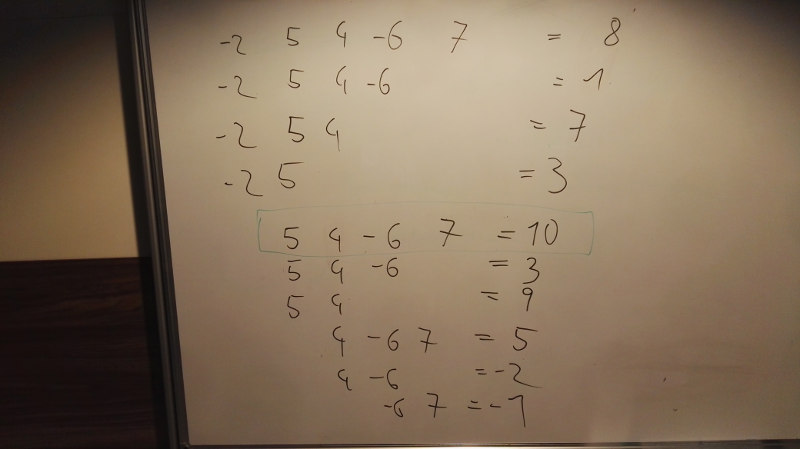 -2 5 4 -6 7 = 8
-2 5 4 -6 = 1
-2 5 4 = 7
-2 5 = 3
5 4 -6 7 = 10
5 4 -6 = 3
5 4 = 9
4 -6 7 = 5
4 -6 = -2
-6 7 = -1